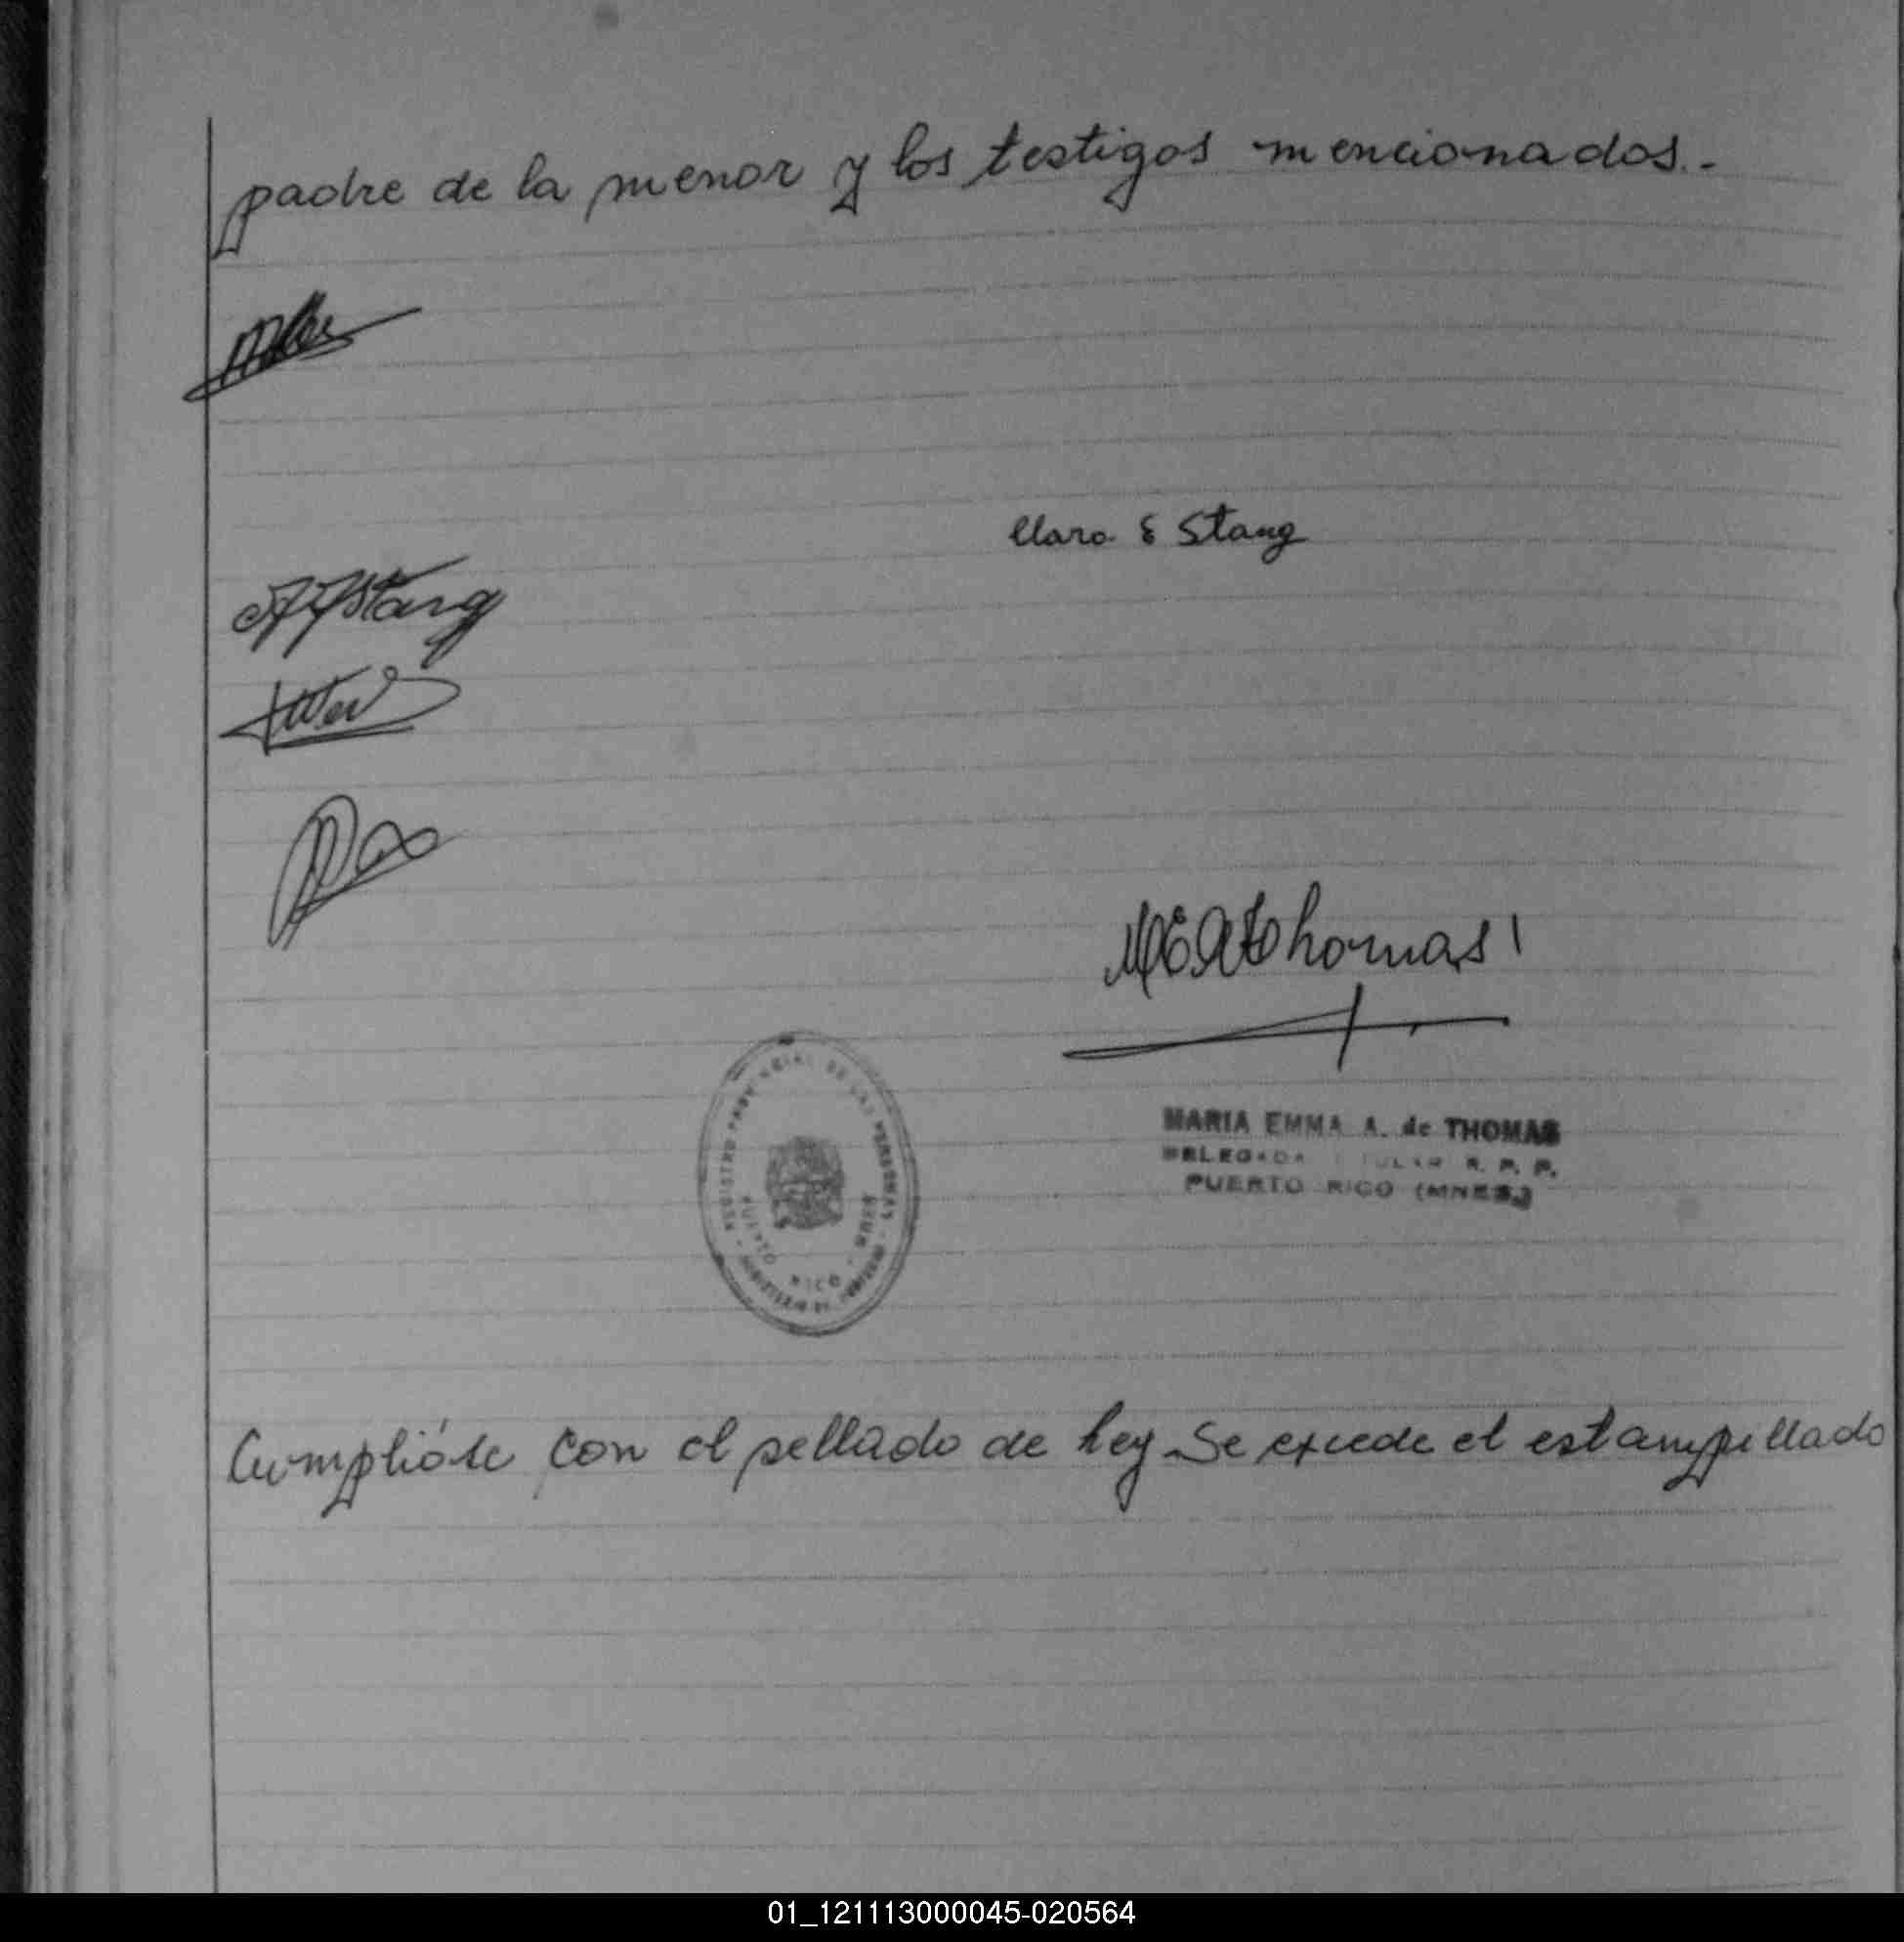 padre de la menor y los testigos mencionados.-
Clara E Stang
Stang
MEAdeThomas
REGISTRO PROVINCIAL DE LAS PERSONAS
PUERTO RICO
MARIA EMMA A. de THOMAS
DELEGADA TITULAR R. P. P.
PUERTO RICO (MNES.)
Cumplióse con el sellado de ley. Se excede el estampillado
01_121113000045-020564